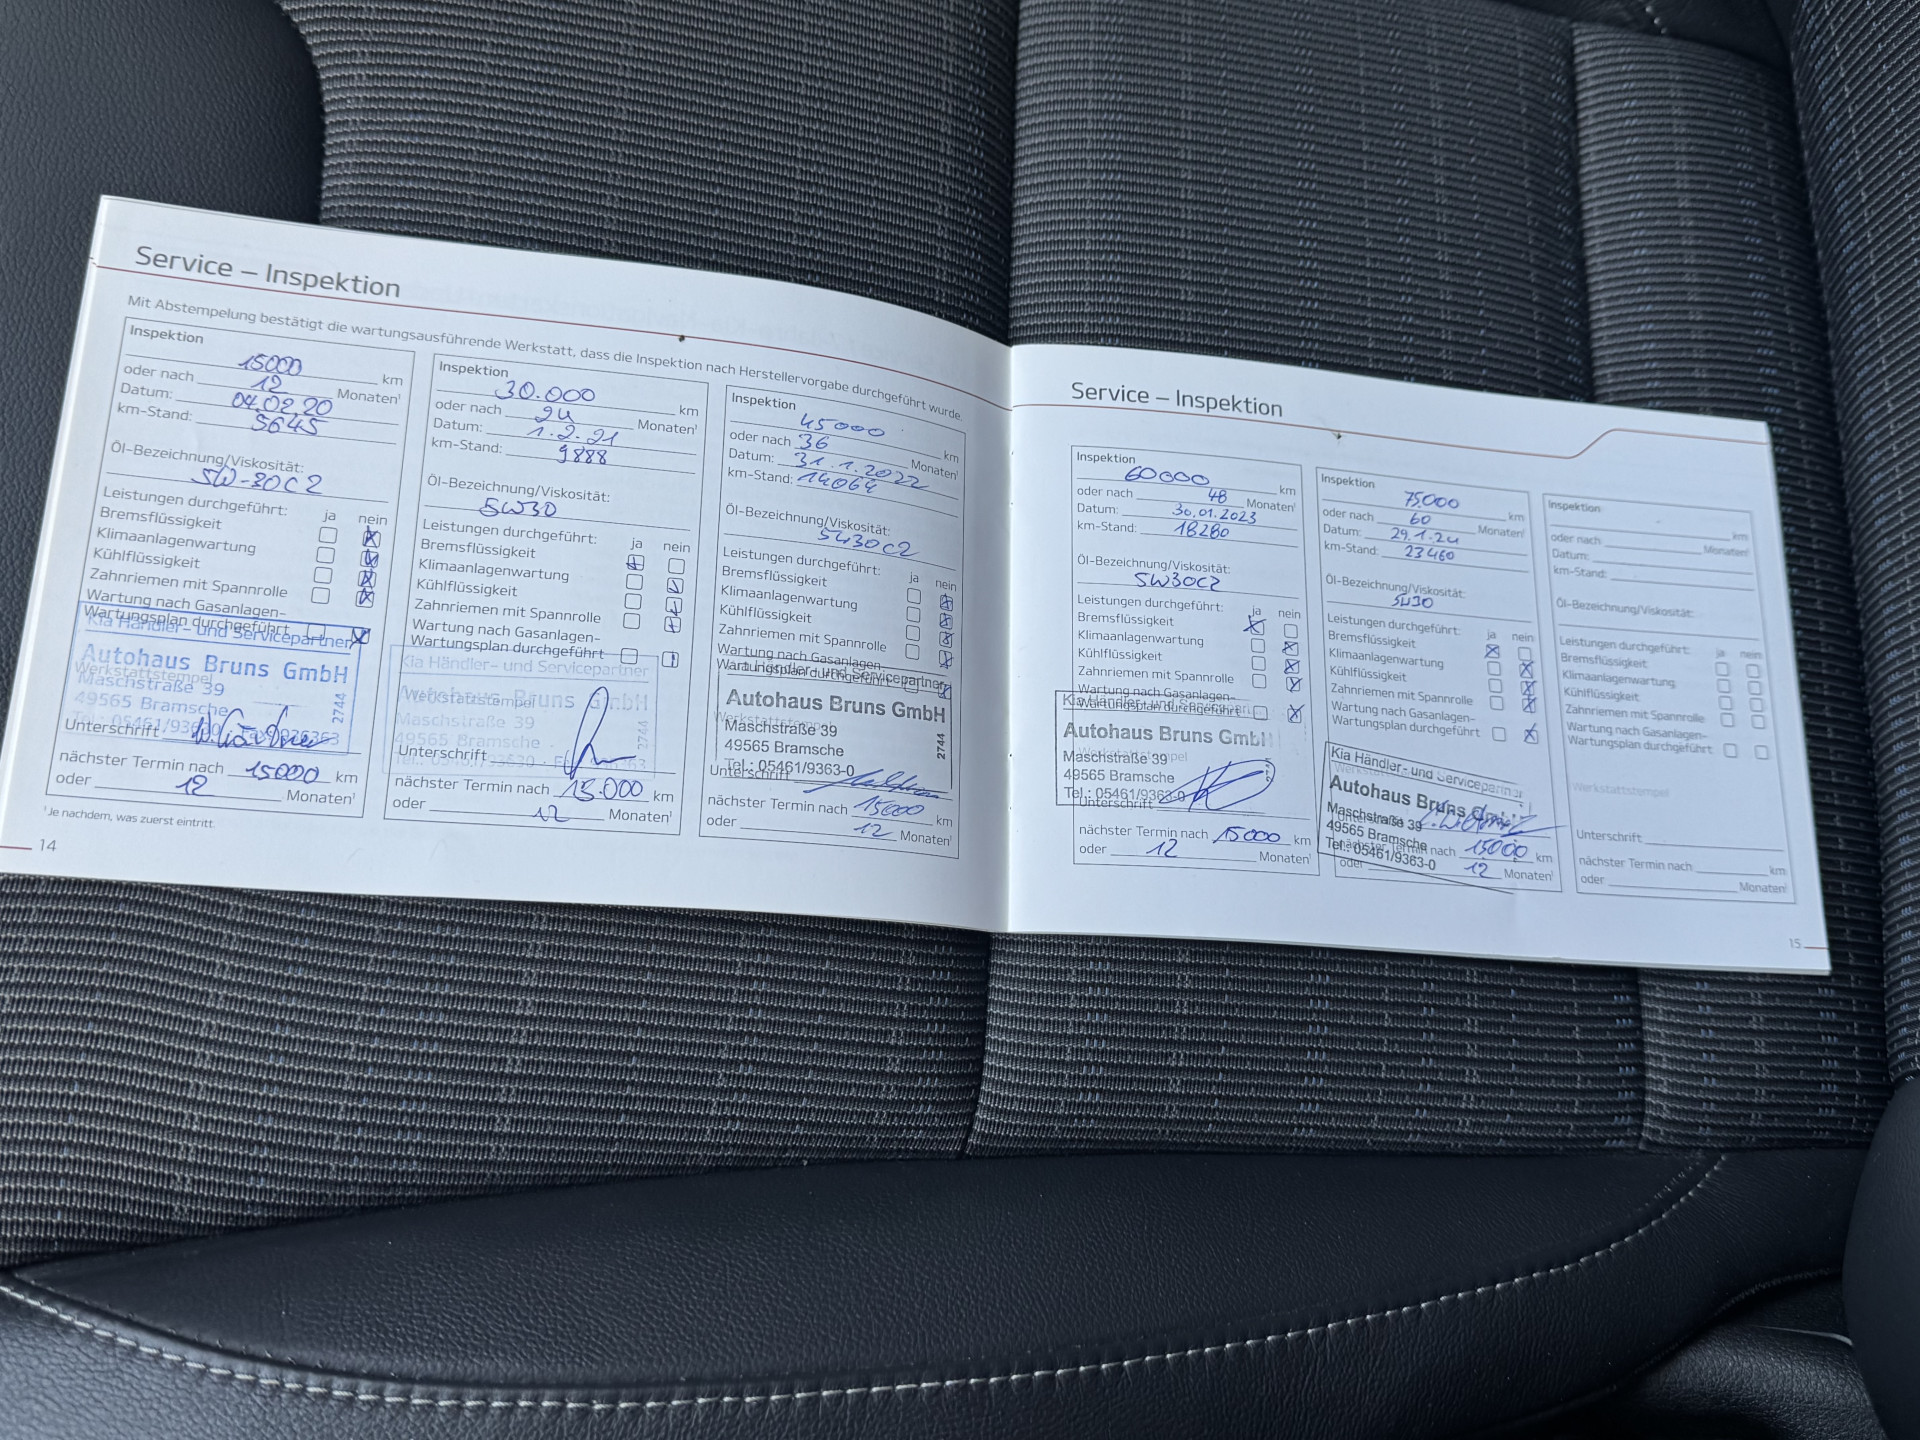 Service – Inspektion
Mit Abstempelung bestätigt die wartungsausführende Werkstatt, dass die Inspektion nach Herstellervorgabe durchgeführt wurde.
Inspektion
15000 km
oder nach 12 Monaten¹
Datum: 04.02.20
km-Stand: 5645
Öl-Bezeichnung/Viskosität:
Leistungen durchgeführt: ja nein
Bremsflüssigkeit
Klimaanlagenwartung
Kühlflüssigkeit
Zahnriemen mit Spannrolle
Wartung nach Gasanlagen-
Wartungsplan durchgeführt
Kia Händler- und Servicepartner
Autohaus Bruns GmbH
Werkstattstempel
Maschstraße 39
49565 Bramsche
2744
Unterschrift
nächster Termin nach 15000 km
oder 12 Monaten¹
¹ Je nachdem, was zuerst eintritt.
14
Inspektion
30.000 km
oder nach 24 Monaten¹
Datum: 1.2.21
km-Stand: 9888
Öl-Bezeichnung/Viskosität:
5W30
Leistungen durchgeführt: ja nein
Bremsflüssigkeit
Klimaanlagenwartung
Kühlflüssigkeit
Zahnriemen mit Spannrolle
Wartung nach Gasanlagen-
Wartungsplan durchgeführt
Kia Händler- und Servicepartner
Autohaus Bruns GmbH
Werkstattstempel
Maschstraße 39
49565 Bramsche
2744
Unterschrift
nächster Termin nach 15.000 km
oder 12 Monaten¹
Inspektion
45000 km
oder nach 36 Monaten¹
Datum: 31.1.2022
km-Stand: 14064
Öl-Bezeichnung/Viskosität:
5W30C2
Leistungen durchgeführt: ja nein
Bremsflüssigkeit
Klimaanlagenwartung
Kühlflüssigkeit
Zahnriemen mit Spannrolle
Wartung nach Gasanlagen-
Wartungsplan durchgeführt
Kia Händler- und Servicepartner
Autohaus Bruns GmbH
Werkstattstempel
Maschstraße 39
49565 Bramsche
Tel.: 05461/9363-0
2744
Unterschrift
nächster Termin nach 15000 km
oder 12 Monaten¹
Service – Inspektion
Inspektion
60000 km
oder nach 48 Monaten¹
Datum: 30.01.2023
km-Stand: 18280
Öl-Bezeichnung/Viskosität:
5W30C2
Leistungen durchgeführt: ja nein
Bremsflüssigkeit
Klimaanlagenwartung
Kühlflüssigkeit
Zahnriemen mit Spannrolle
Wartung nach Gasanlagen-
Wartungsplan durchgeführt
Kia Händler- und Servicepartner
Autohaus Bruns GmbH
Werkstattstempel
Maschstraße 39
49565 Bramsche
Tel.: 05461/9363-0
Unterschrift
nächster Termin nach 15000 km
oder 12 Monaten¹
Inspektion
75000 km
oder nach 60 Monaten¹
Datum: 29.1.24
km-Stand: 23460
Öl-Bezeichnung/Viskosität:
5W30
Leistungen durchgeführt: ja nein
Bremsflüssigkeit
Klimaanlagenwartung
Kühlflüssigkeit
Zahnriemen mit Spannrolle
Wartung nach Gasanlagen-
Wartungsplan durchgeführt
Kia Händler- und Servicepartner
Autohaus Bruns GmbH
Maschstraße 39
49565 Bramsche
Tel.: 05461/9363-0
nächster Termin nach 15000 km
oder 12 Monaten¹
Inspektion
km
oder nach Monaten¹
Datum:
km-Stand:
Öl-Bezeichnung/Viskosität:
Leistungen durchgeführt: ja nein
Bremsflüssigkeit
Klimaanlagenwartung
Kühlflüssigkeit
Zahnriemen mit Spannrolle
Wartung nach Gasanlagen-
Wartungsplan durchgeführt
Werkstattstempel
Unterschrift
nächster Termin nach km
oder Monaten¹
15